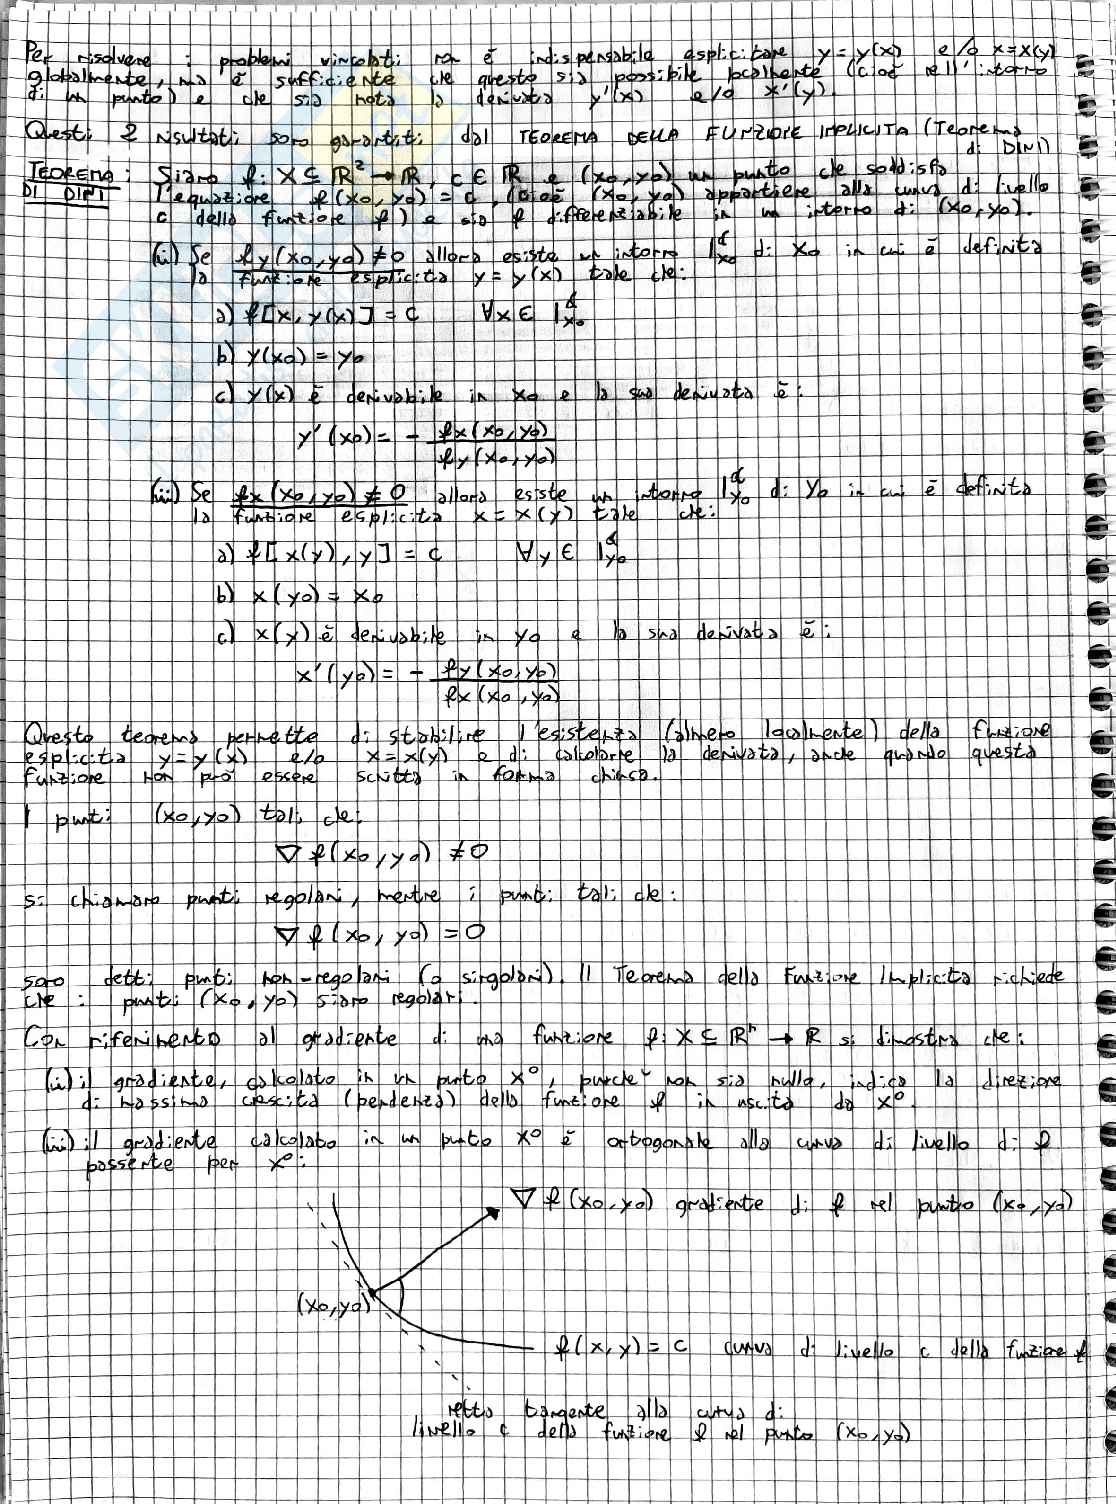 Per risolvere i problemi vincolati non è indispensabile esplicitare y = y(x) e/o x = x(y)
globalmente, ma è sufficiente che questo sia possibile localmente (cioè nell'intorno
di un punto) e che sia nota la derivata y'(x) e/o x'(y).
Questi 2 risultati sono garantiti dal TEOREMA DELLA FUNZIONE IMPLICITA (Teorema
di DINI)
TEOREMA: Siano f: X ⊆ ℝ² → ℝ, c ∈ ℝ e (x0,y0) un punto che soddisfa
DI DINI l'equazione f(x0,y0) = c, (cioè (x0,y0) appartiene alla curva di livello
c della funzione f) e sia f differenziabile in un intorno di (x0,y0).
(i) Se fy(x0,y0) ≠ 0 allora esiste un intorno I x0 di x0 in cui è definita
la funzione esplicita y = y(x) tale che:
a) f[x, y(x)] = c ∀x ∈ I x0
b) y(x0) = y0
c) y(x) è derivabile in x0 e la sua derivata è:
y'(x0) = - fx(x0,y0)
fy(x0,y0)
(ii) Se fx(x0,y0) ≠ 0 allora esiste un intorno I y0 di y0 in cui è definita
la funzione esplicita x = x(y) tale che:
a) f[x(y), y] = c ∀y ∈ I y0
b) x(y0) = x0
c) x(y) è derivabile in y0 e la sua derivata è:
x'(y0) = - fy(x0,y0)
fx(x0,y0)
Questo teorema permette di stabilire l'esistenza (almeno localmente) della funzione
esplicita y = y(x) e/o x = x(y) e di calcolarne la derivata, anche quando questa
funzione non può essere scritta in forma chiusa.
I punti (x0,y0) tali che:
∇ f(x0,y0) ≠ 0
si chiamano punti regolari, mentre i punti tali che:
∇ f(x0,y0) = 0
sono detti punti non-regolari (o singolari). Il Teorema della Funzione Implicita richiede
che i punti (x0,y0) siano regolari.
Con riferimento al gradiente di una funzione f: X ⊆ ℝⁿ → ℝ si dimostra che:
(i) il gradiente, calcolato in un punto x⁰, purchè non sia nullo, indica la direzione
di massima crescita (pendenza) della funzione f in uscita da x⁰.
(ii) il gradiente calcolato in un punto x⁰ è ortogonale alla curva di livello di f
passante per x⁰:
∇ f(x0,y0) gradiente di f nel punto (x0,y0)
(x0,y0)
f(x,y) = c curva di livello c della funzione f
retta tangente alla curva di
livello c della funzione f nel punto (x0,y0)